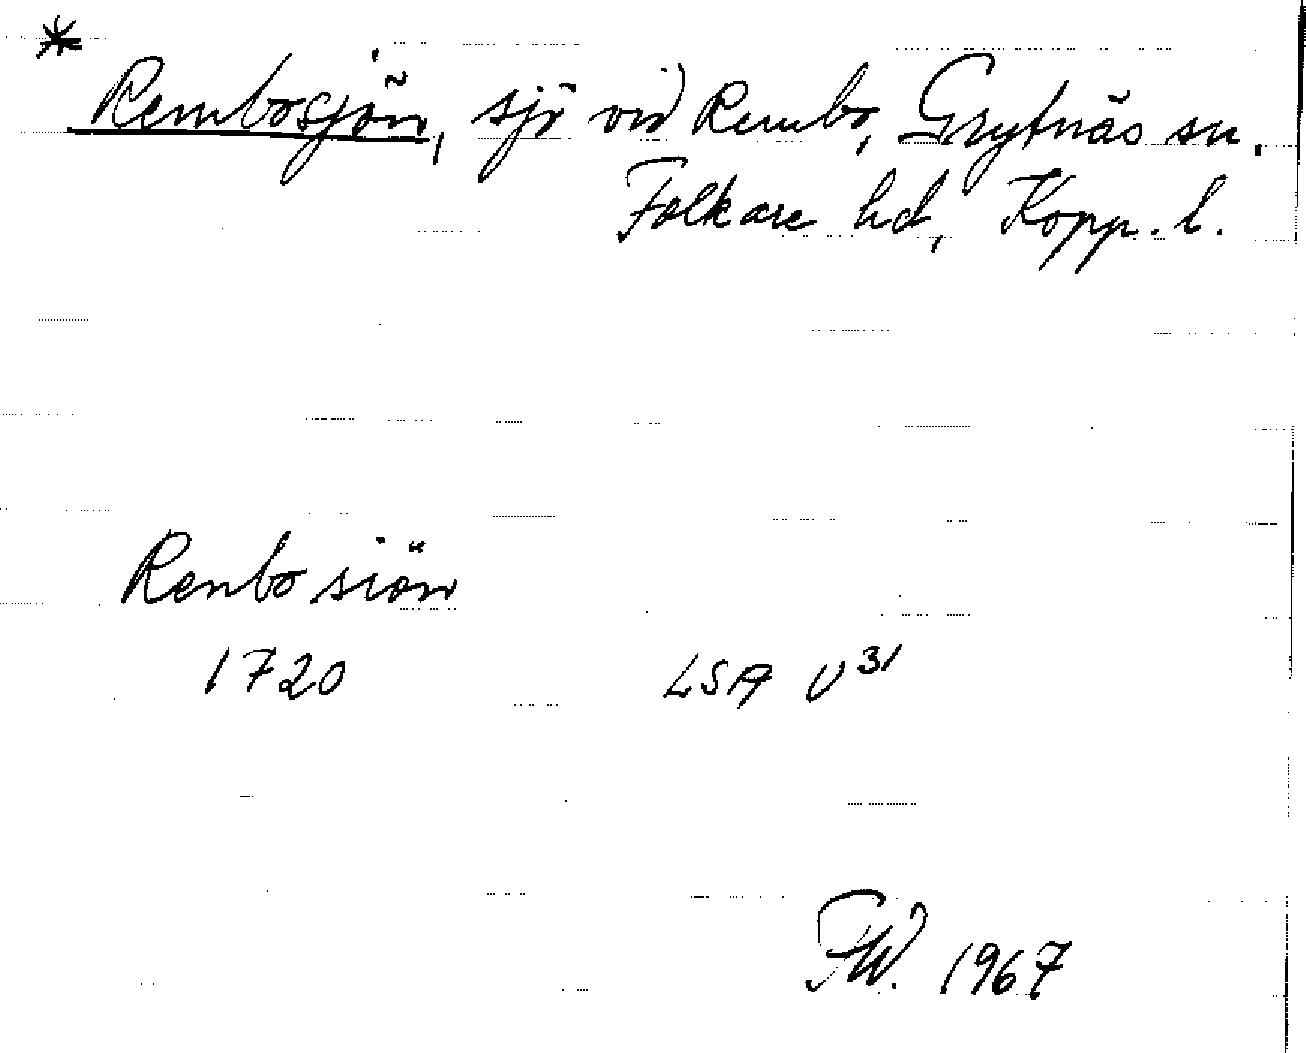 * Rembosjön, sjö vid Rembo, Grytnäs sn.
Folkare hd, Kopp. l.
Renbo siön
1720 LSA U³¹
FW. 1967